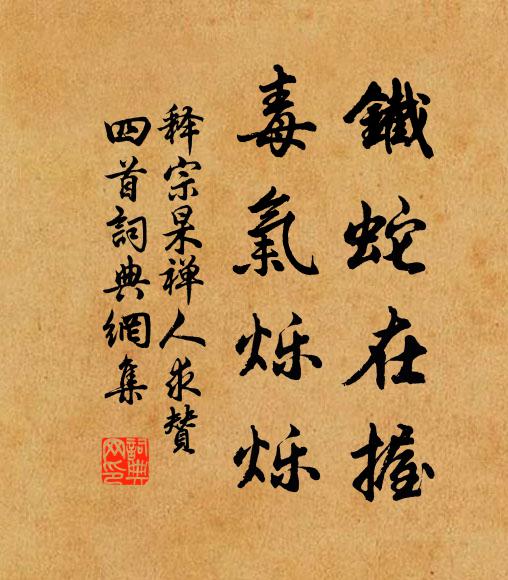 鐵蛇在握
毒氣烁烁
释宗杲禅人求贊
四首詞典網集
詞典
网印